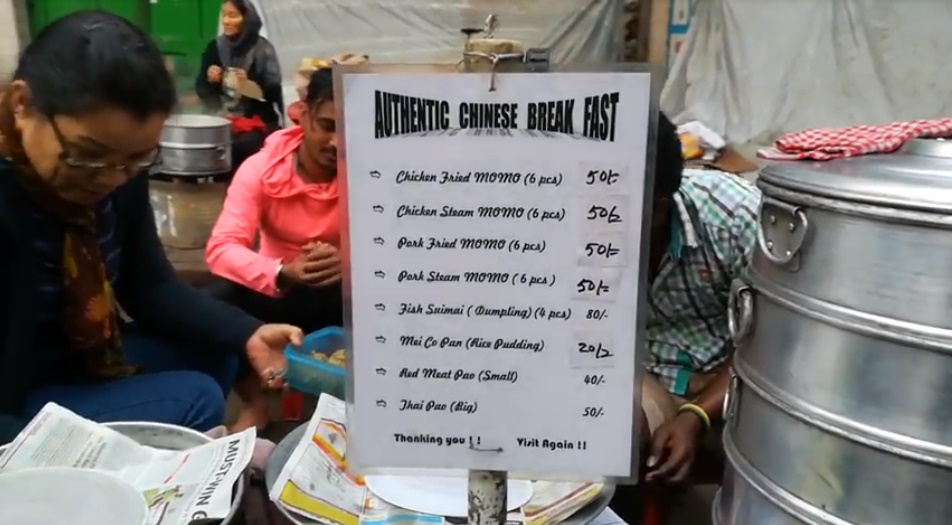 AUTHENTIC CHINESE BREAK FAST
⇨ Chicken Fried MOMO (6 pcs) 50/-
⇨ Chicken Steam MOMO (6 pcs) 50/-
⇨ Pork Fried MOMO (6 pcs) 50/-
⇨ Pork Steam MOMO ( 6 pcs) 50/-
⇨ Fish Suimai ( Dumpling) (4 pcs) 80/-
⇨ Mei Co Pan (Rice Pudding) 20/-
⇨ Red Meat Pao (Small) 40/-
⇨ Thai Pao (Big) 50/-
Thanking you ! ! Visit Again !!
MUST-WIN